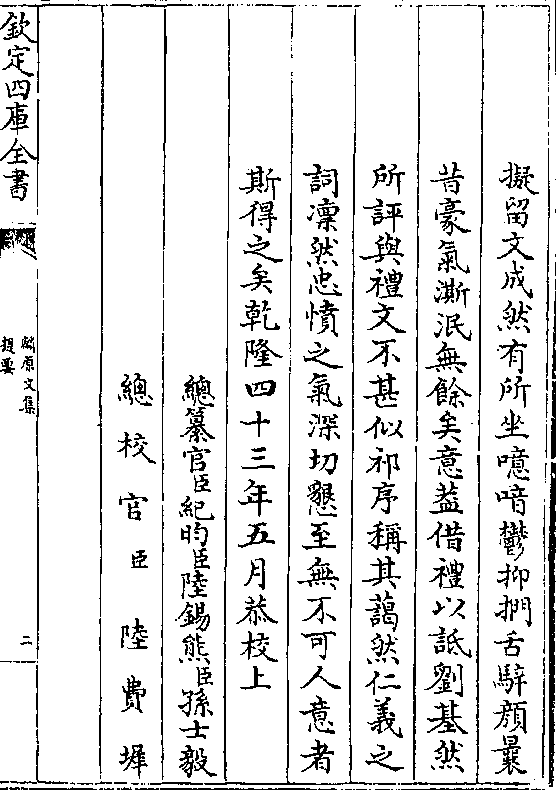 擬留文成然有所坐噫喑鬱抑捫舌騂顔曩
昔豪氣澌泯無餘矣意葢借禮以詆劉基然
所評與禮文不甚似祁序稱其藹然仁義之
詞凜然忠憤之氣深切懇至無不可人意者
斯得之矣乾隆四十三年五月恭校上
總纂官臣紀昀臣陸錫熊臣孫士毅
總校官臣陸費墀
欽定四庫全書
麟原文集
提要
二